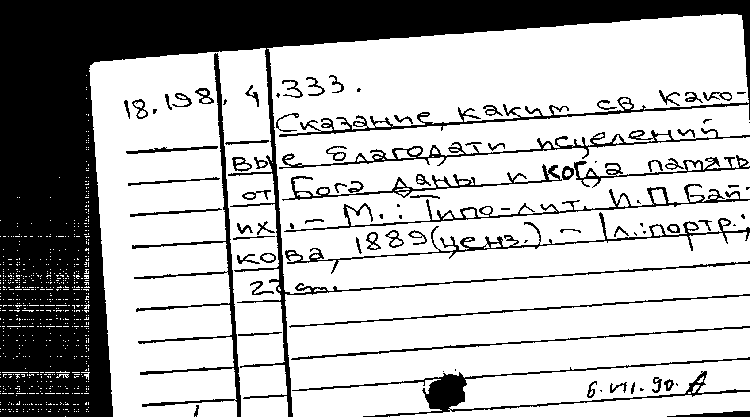 18.198.4.333.
Сказание, каким св. како-
вые благодати исцелений
от Бога даны и когда память
их. – М.: Типо-лит. И.П. Бай-
кова, 1889 (ценз.). – 1л.: портр.;
22 см.
6.VII.90.